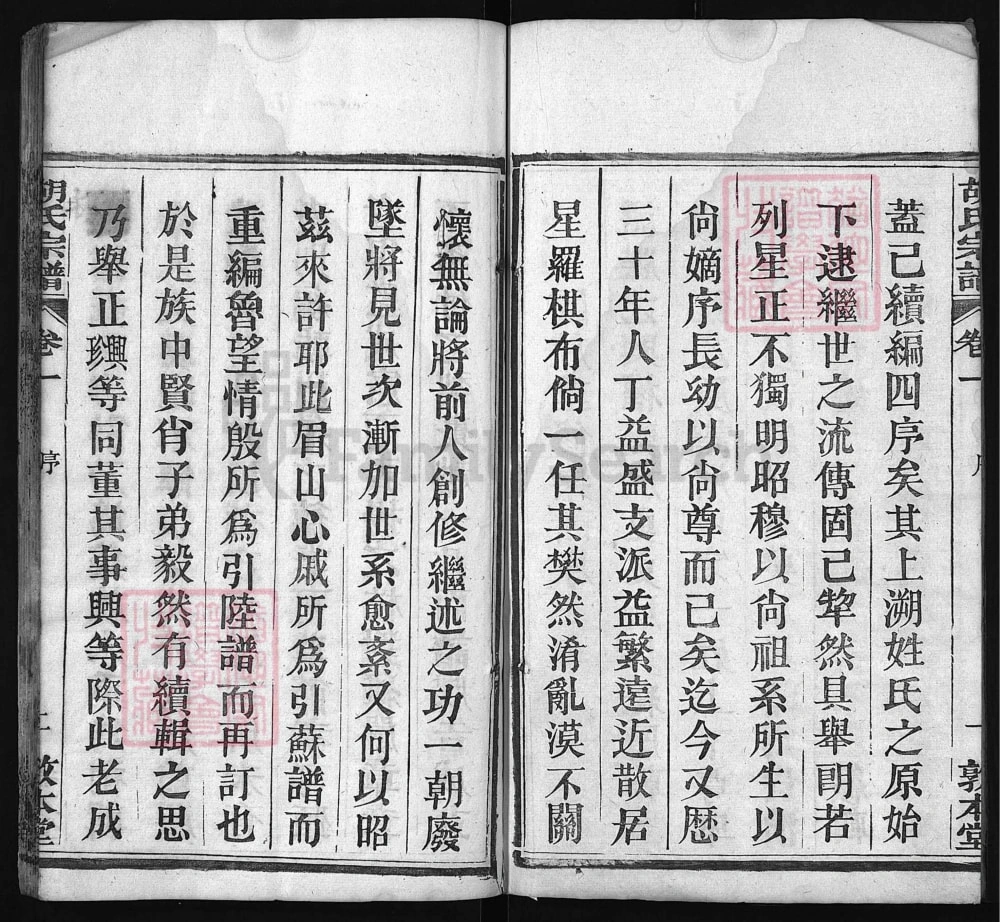 胡氏宗譜
卷一
序
一
敦本堂
蓋己續編四序矣其上溯姓氏之原始
下逮繼世之流傳固己犂然具舉朗若
列星正不獨明昭穆以尙祖系所生以
尙嫡序長幼以尙尊而己矣迄今又歴
三十年人丁益盛支派益繁遠近散居
星羅棋布倘一任其樊然淆亂漠不關
懷無論將前人創修繼述之功一朝廢
墜將見世次漸加世系愈紊又何以昭
茲來許耶此眉山心戚所爲引蘇譜而
重編魯望情殷所爲引陸譜而再訂也
於是族中賢肖子弟毅然有續輯之思
乃舉正璵等同董其事興等際此老成
胡氏宗譜
卷一
序
敦本堂
FamilySearch